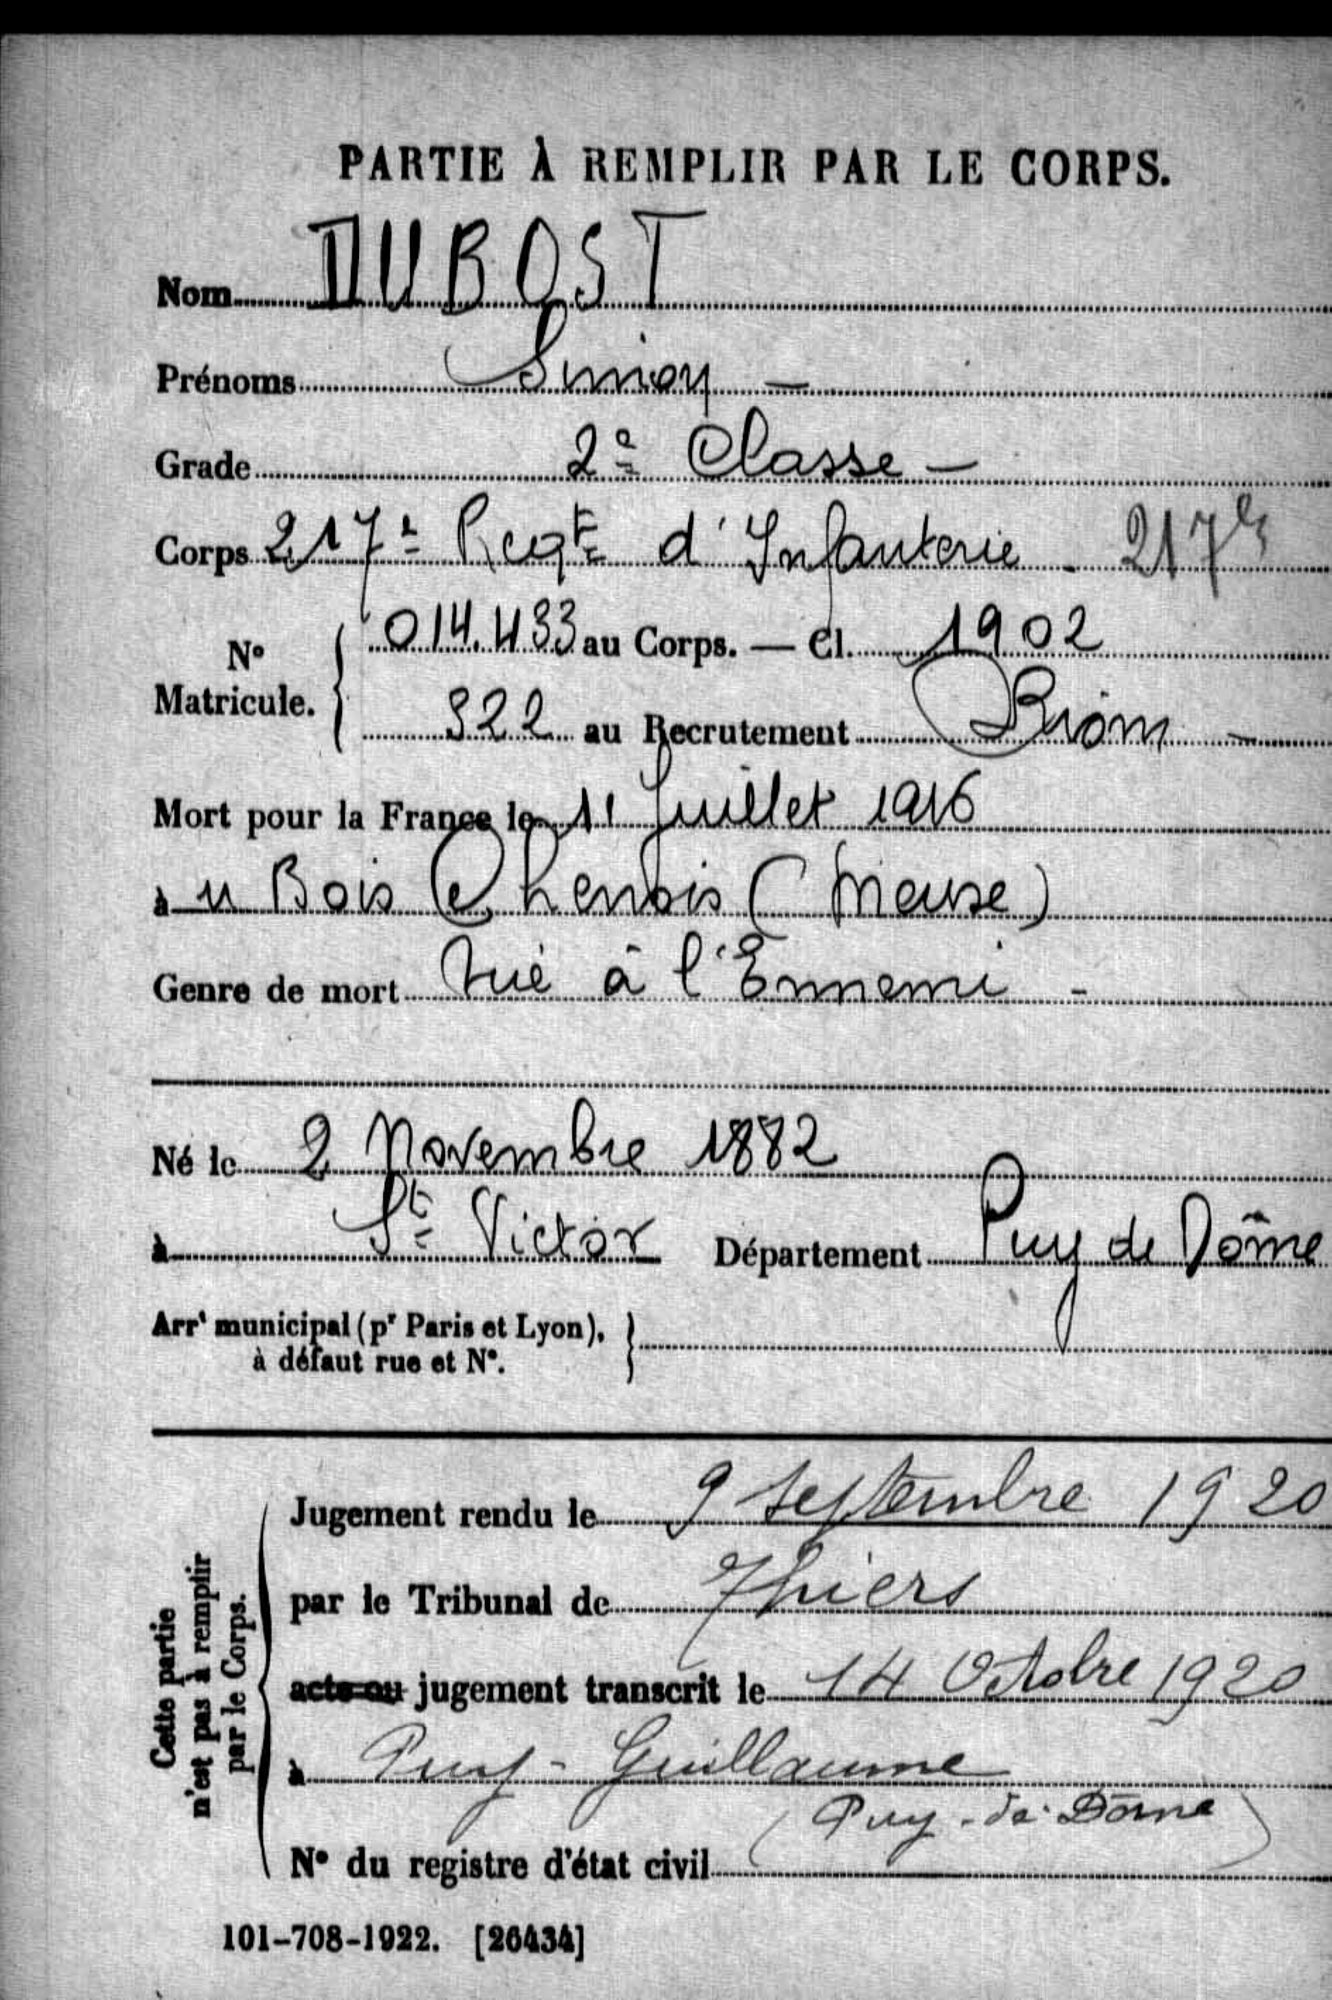 PARTIE À REMPLIR PAR LE CORPS.
Nom DUBOST
Prénoms Simon —
Grade 2e Classe —
Corps 217e Regt d'Infanterie - 217e
N° Matricule. { 014.433 au Corps. — Cl. 1902
322 au Recrutement Riom —
Mort pour la France le 11 Juillet 1916
à u Bois Chenois (Meuse)
Genre de mort tué à l'Ennemi -
Né le 2 Novembre 1882
à St Victor Département Puy de Dôme
Arrt municipal (pr Paris et Lyon), }
à défaut rue et N°.
Cette partie
n'est pas à remplir
par le Corps.
Jugement rendu le 9 septembre 1920
par le Tribunal de Thiers
acte ou jugement transcrit le 14 Octobre 1920
à Puy-Guillaume
(Puy-de-Dôme)
N° du registre d'état civil
101-708-1922. [26434]